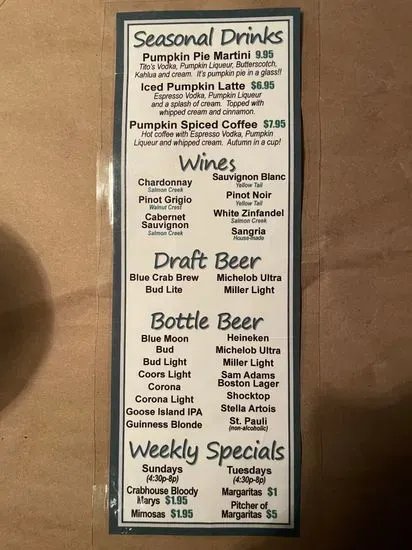 Seasonal Drinks
Pumpkin Pie Martini 9.95
Tito's Vodka, Pumpkin Liqueur, Butterscotch,
Kahlua and cream. It's pumpkin pie in a glass!!
Iced Pumpkin Latte $6.95
Espresso Vodka, Pumpkin Liqueur
and a splash of cream. Topped with
whipped cream and cinnamon.
Pumpkin Spiced Coffee $7.95
Hot coffee with Espresso Vodka, Pumpkin
Liqueur and whipped cream. Autumn in a cup!
Wines
Chardonnay
Salmon Creek
Pinot Grigio
Walnut Crest
Cabernet
Sauvignon
Salmon Creek
Sauvignon Blanc
Yellow Tail
Pinot Noir
Yellow Tail
White Zinfandel
Salmon Creek
Sangria
House-made
Draft Beer
Blue Crab Brew
Bud Lite
Michelob Ultra
Miller Light
Bottle Beer
Blue Moon
Bud
Bud Light
Coors Light
Corona
Corona Light
Goose Island IPA
Guinness Blonde
Heineken
Michelob Ultra
Miller Light
Sam Adams
Boston Lager
Shocktop
Stella Artois
St. Pauli
(non-alcoholic)
Weekly Specials
Sundays
(4:30p-8p)
Crabhouse Bloody
Marys $1.95
Mimosas $1.95
Tuesdays
(4:30p-8p)
Margaritas $1
Pitcher of
Margaritas $5